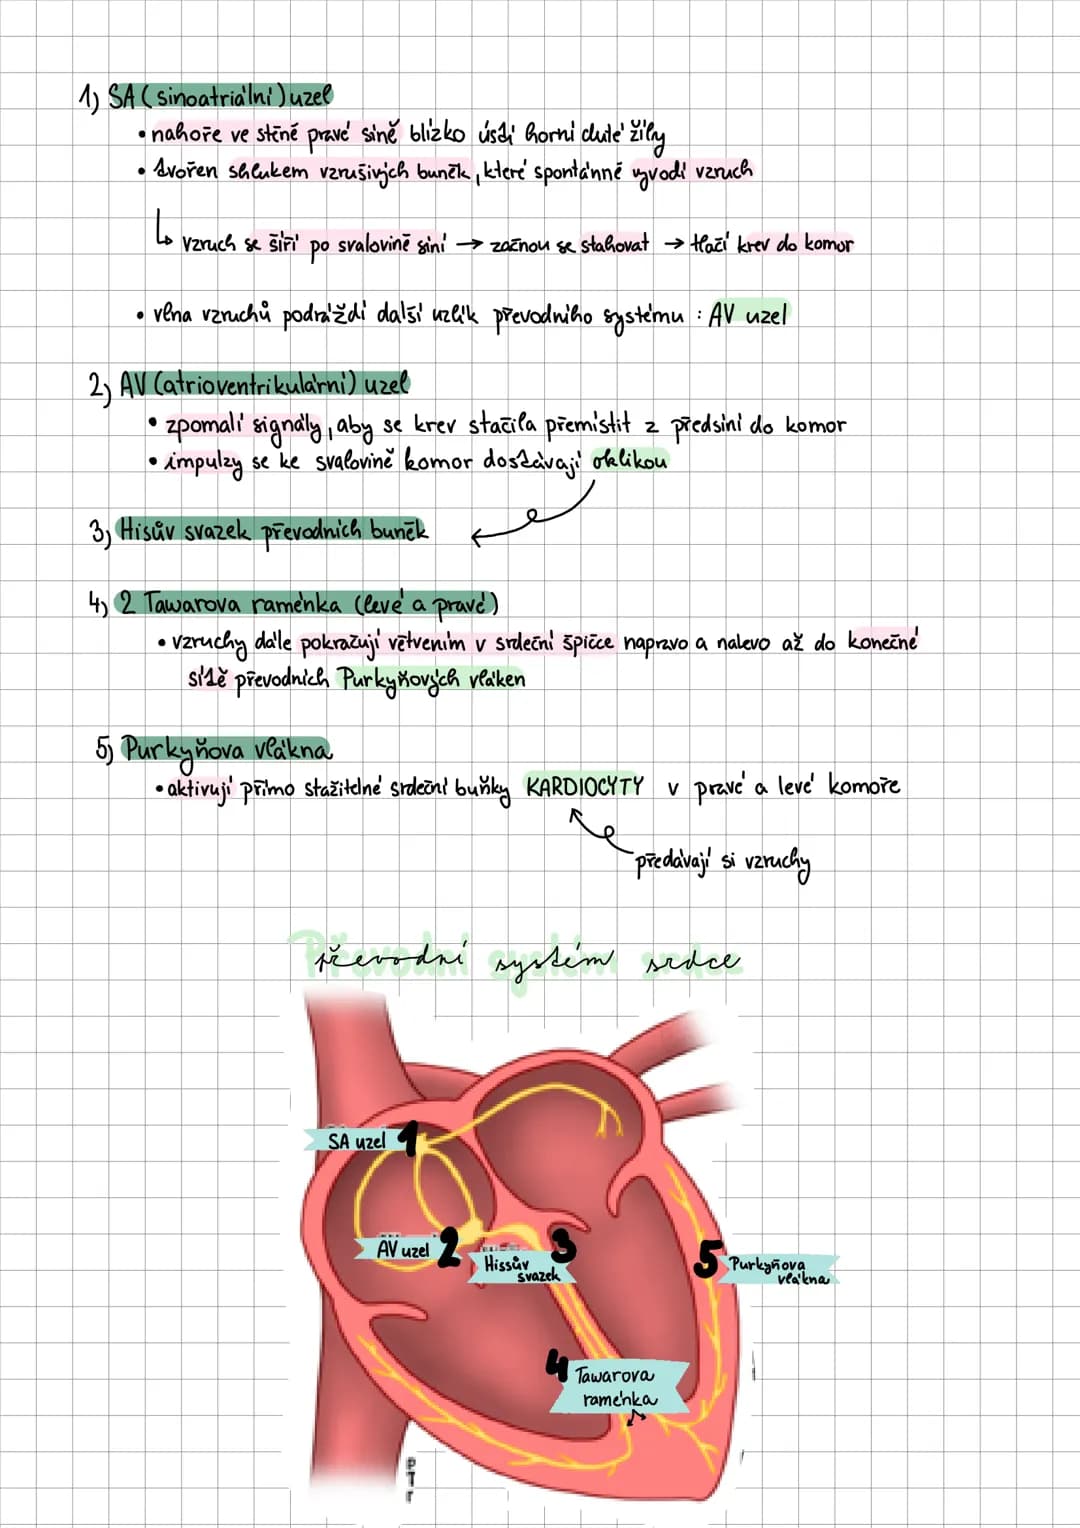 1) SA (sinoatriální) uzel
• nahoře ve stěně pravé síně blízko ústí horní duté žíly
• tvořen shlukem vzrušivých buněk, které spontánně vyvodí vzruch
↳ vzruch se šíří po svalovině síní → začnou se stahovat → tlačí krev do komor
• vlna vzruchů podráždí další uzlík převodního systému : AV uzel
2) AV (atrioventrikulární) uzel
• zpomalí signály, aby se krev stačila přemístit z předsíní do komor
• impulzy se ke svalovině komor dostávají oklikou
3) Hisův svazek převodních buněk
4) 2 Tawarova raménka (levé a pravé)
• vzruchy dále pokračují větvením v srdeční špičce napravo a nalevo až do konečné
sítě převodních Purkyňových vláken
5) Purkyňova vlákna
• aktivují přímo stažitelné srdeční buňky KARDIOCYTY v pravé a levé komoře
předávají si vzruchy
Převodní systém srdce
SA uzel 1
AV uzel 2
Hissův 3
svazek
5 Purkyňova
vlákna
4 Tawarova
raménka